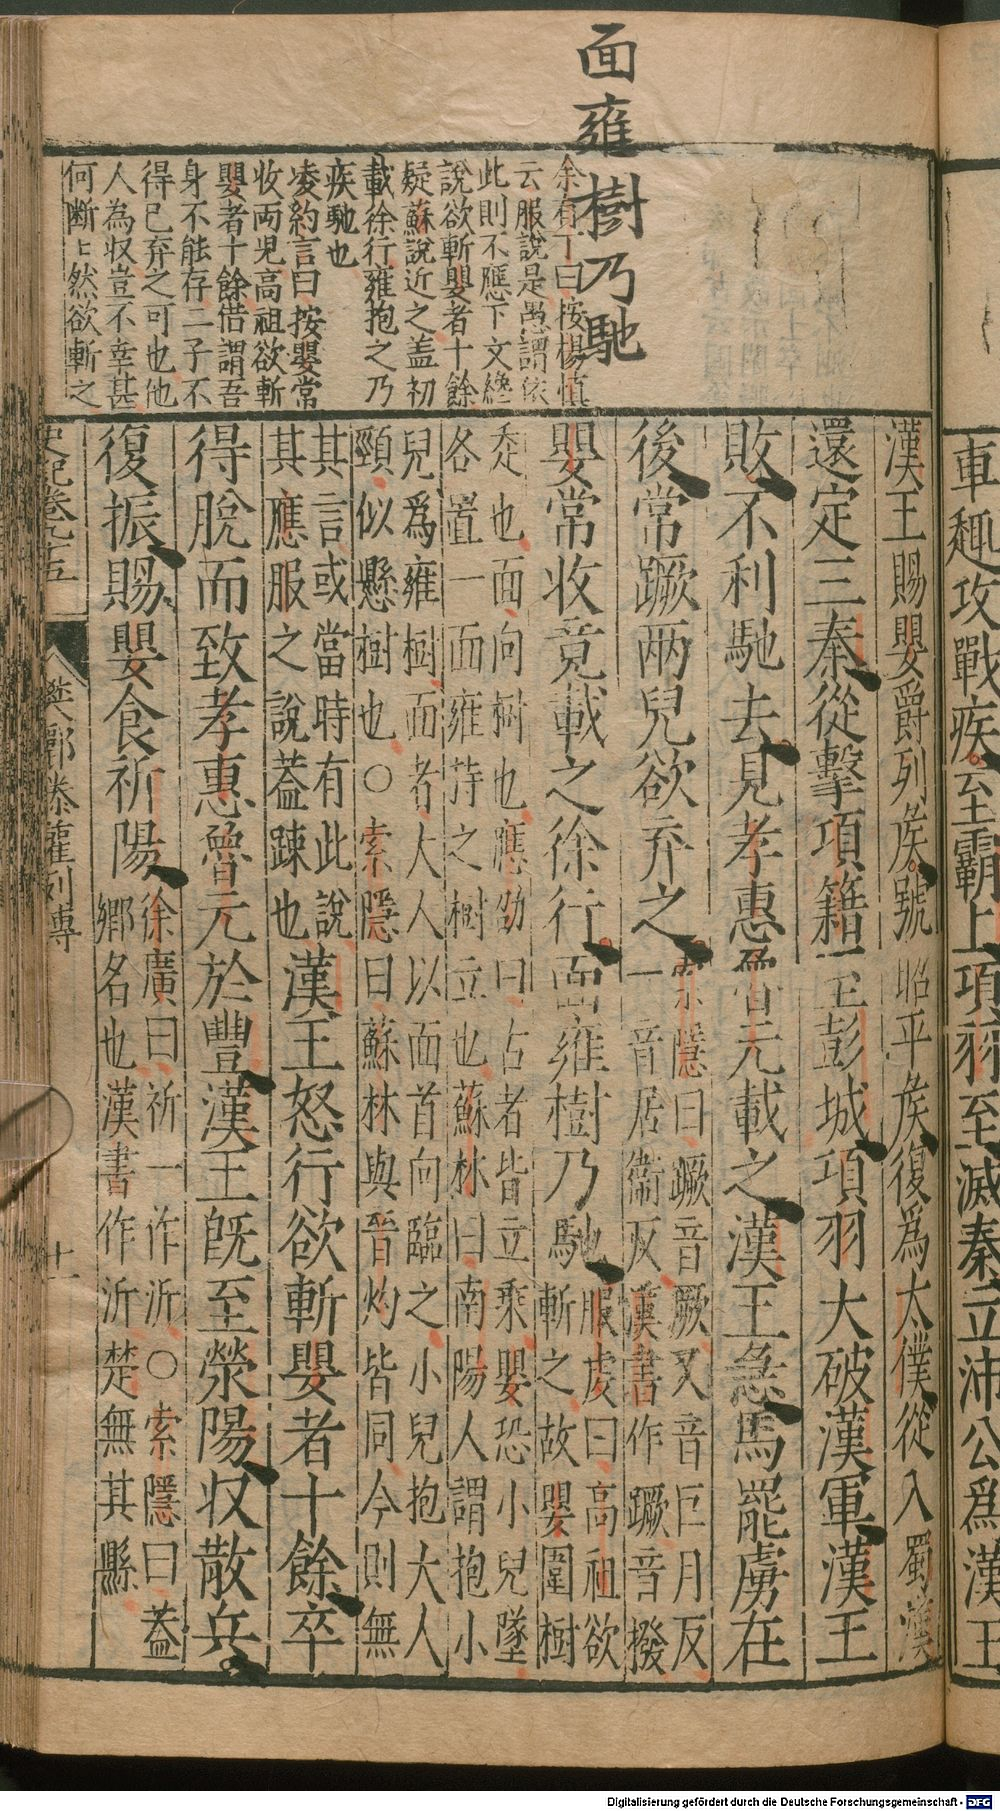 車趣攻戰疾至霸上項羽至滅秦立沛公爲漢王
漢王賜嬰爵列矦號昭平矦復爲太僕從入蜀漢
還定三秦從擊項籍至彭城項羽大破漢軍漢王
敗不利馳去見孝惠魯元載之漢王急馬罷虜在
後常蹶兩兒欲弃之
索隱曰蹶音厥又音巨月反
一音居衞反漢書作蹶音撥
嬰常收竟載之徐行面雍樹乃馳
服虔曰高祖欲
斬之故嬰圍樹
走也面向樹也應劭曰古者皆立乘嬰恐小兒墜
各置一面雍持之樹立也蘇林曰南陽人謂抱小
兒爲雍樹面者大人以面首向臨之小兒抱大人
頸似懸樹也○索隱曰蘇林與晉灼皆同今則無
其言或當時有此說
其應服之說蓋踈也
漢王怒行欲斬嬰者十餘卒
得脫而致孝惠魯元於豐漢王旣至滎陽収散兵
復振賜嬰食祈陽
徐廣曰祈一作沂○索隱曰蓋
鄉名也漢書作沂楚無其縣
面雍樹乃馳
余有丁曰按楊慎
云服說是愚謂依
此則不應下文纔
說欲斬嬰者十餘
疑蘇說近之蓋初
載徐行雍抱之乃
疾馳也
凌約言曰按嬰常
收两兒高祖欲斬
嬰者十餘借謂吾
身不能存二子不
得已弃之可也他
人為収豈不幸甚
何斷上然欲斬之
史記卷九十五
樊酈滕灌列傳
十一
Digitalisierung gefördert durch die Deutsche Forschungsgemeinschaft - DFG